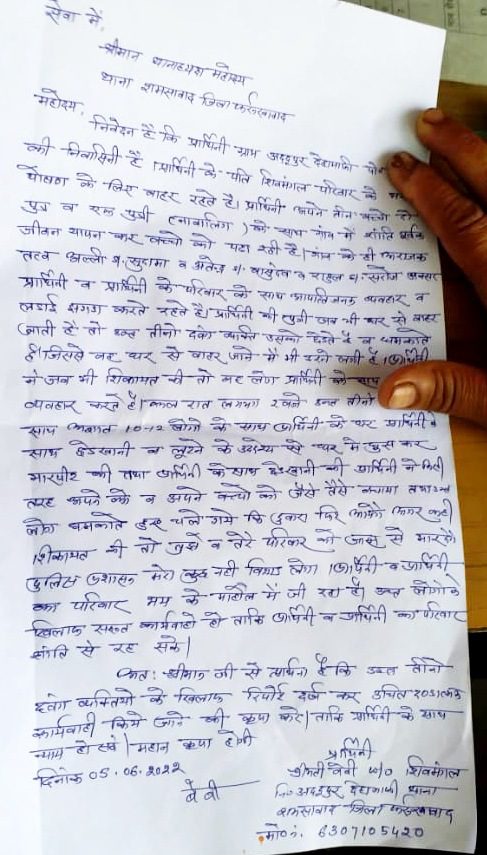 सेवा में,
श्रीमान थानाध्यक्ष महोदय
थाना शमसाबाद जिला फर्रुखाबाद
महोदय,
निवेदन है कि प्रार्थिनी ग्राम अददुपुर देहामाफी
की निवासिनी है। प्रार्थिनी के पति शिवमंगल परिवार के
पोषण के लिए बाहर रहते है। प्रार्थिनी अपने तीन बच्चो दो
पुत्र व एक पुत्री (नाबालिग) के साथ गांव में शांति पूर्वक
जीवन यापन कर बच्चो को पढा रही है। गांव के ही अराजक
तत्व अल्ली s/o सुदामा व s/o वासुदेव व राहुल s/o सरोज अक्सर
प्रार्थिनी व प्रार्थिनी के परिवार के साथ आपत्तिजनक व्यवहार व
लडाई झगडा करते रहते है। प्रार्थिनी की पुत्री जब भी घर से बाहर
जाती है तो उक्त तीनो दबंग व्यक्ति उसको छेडते है व धमकाते
है। जिससे वह घर से बाहर जाने में भी डरने लगी है। प्रार्थिनी
ने जब भी शिकायत की तो यह लोग प्रार्थिनी के साथ
व्यवहार करते है। कल रात लगभग 2 बजे उक्त तीनो
साथ 10-12 लोगो के साथ प्रार्थिनी के घर प्रार्थिनी के
साथ छेडखानी व लूटने के उद्देश्य से घर में घुस कर
मारपीट की तथा प्रार्थिनी के साथ छेडखानी की प्रार्थिनी ने किसी
तरह अपने को व अपने बच्चो को जैसे तैसे बचाया तथा उक्त
लोग धमकाते हुए चले गये कि दुबारा फिर आयेंगे अगर कही
शिकायत की तो तुझे व तेरे परिवार को जान से मार देंगे
पुलिस प्रशासन मेरा कुछ नही बिगाड लेगा। प्रार्थिनी व प्रार्थिनी
का परिवार भय के माहौल में जी रहा है। उक्त लोगो के
खिलाफ सख्त कार्यवाही हो ताकि प्रार्थिनी व प्रार्थिनी का परिवार
शांति से रह सके।
अतः श्रीमान जी से प्रार्थना है कि उक्त तीनो
दबंग व्यक्तियो के खिलाफ रिपोर्ट दर्ज कर उचित दण्डात्मक
कार्यवाही किये जाने की कृपा करे। ताकि प्रार्थिनी के साथ
न्याय हो सके। महान कृपा होगी
प्रार्थिनी
दिनांक 05.06.2022
श्रीमती बेबी w/o शिवमंगल
बेबी
नि० अददुपुर देहामाफी थाना
शमसाबाद जिला फर्रुखाबाद
मो० नं. 6307105420